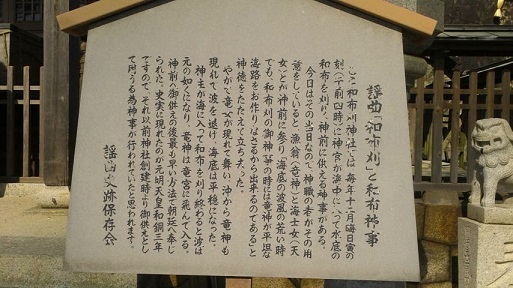 謡曲「和布刈」と和布神事
ここ和布刈神社では毎年十二月晦日寅の
刻(午前四時)に神官が海中に入って水底の
和布を刈り、神前に供える神事がある。
今日はその当日なので、神職の者がその用
意をしていると、漁翁(竜神)と海士女(天
女)とが神前に参り「海底の波風の荒い時
でも、和布刈の御神事の時には竜神が平坦な
海路をお作りなさるから出来るのである」と
神徳をたたえて立ち去った。
やがて竜女が現れて舞い、沖から竜神も
現れて波を退け、海底は平穏になった。
神主が海に入って和布を刈り終わると波は
元の如くになり、竜神は竜宮に飛んで入る。
神前へ御供えの後最も早い方法で朝廷へ奉じ
られた。史実に現れたのが元明天皇和銅三年
ですので、それ以前神社創建時より御供えとし
て用うる為神事が行われていたと思われます。
謡曲史跡保存会